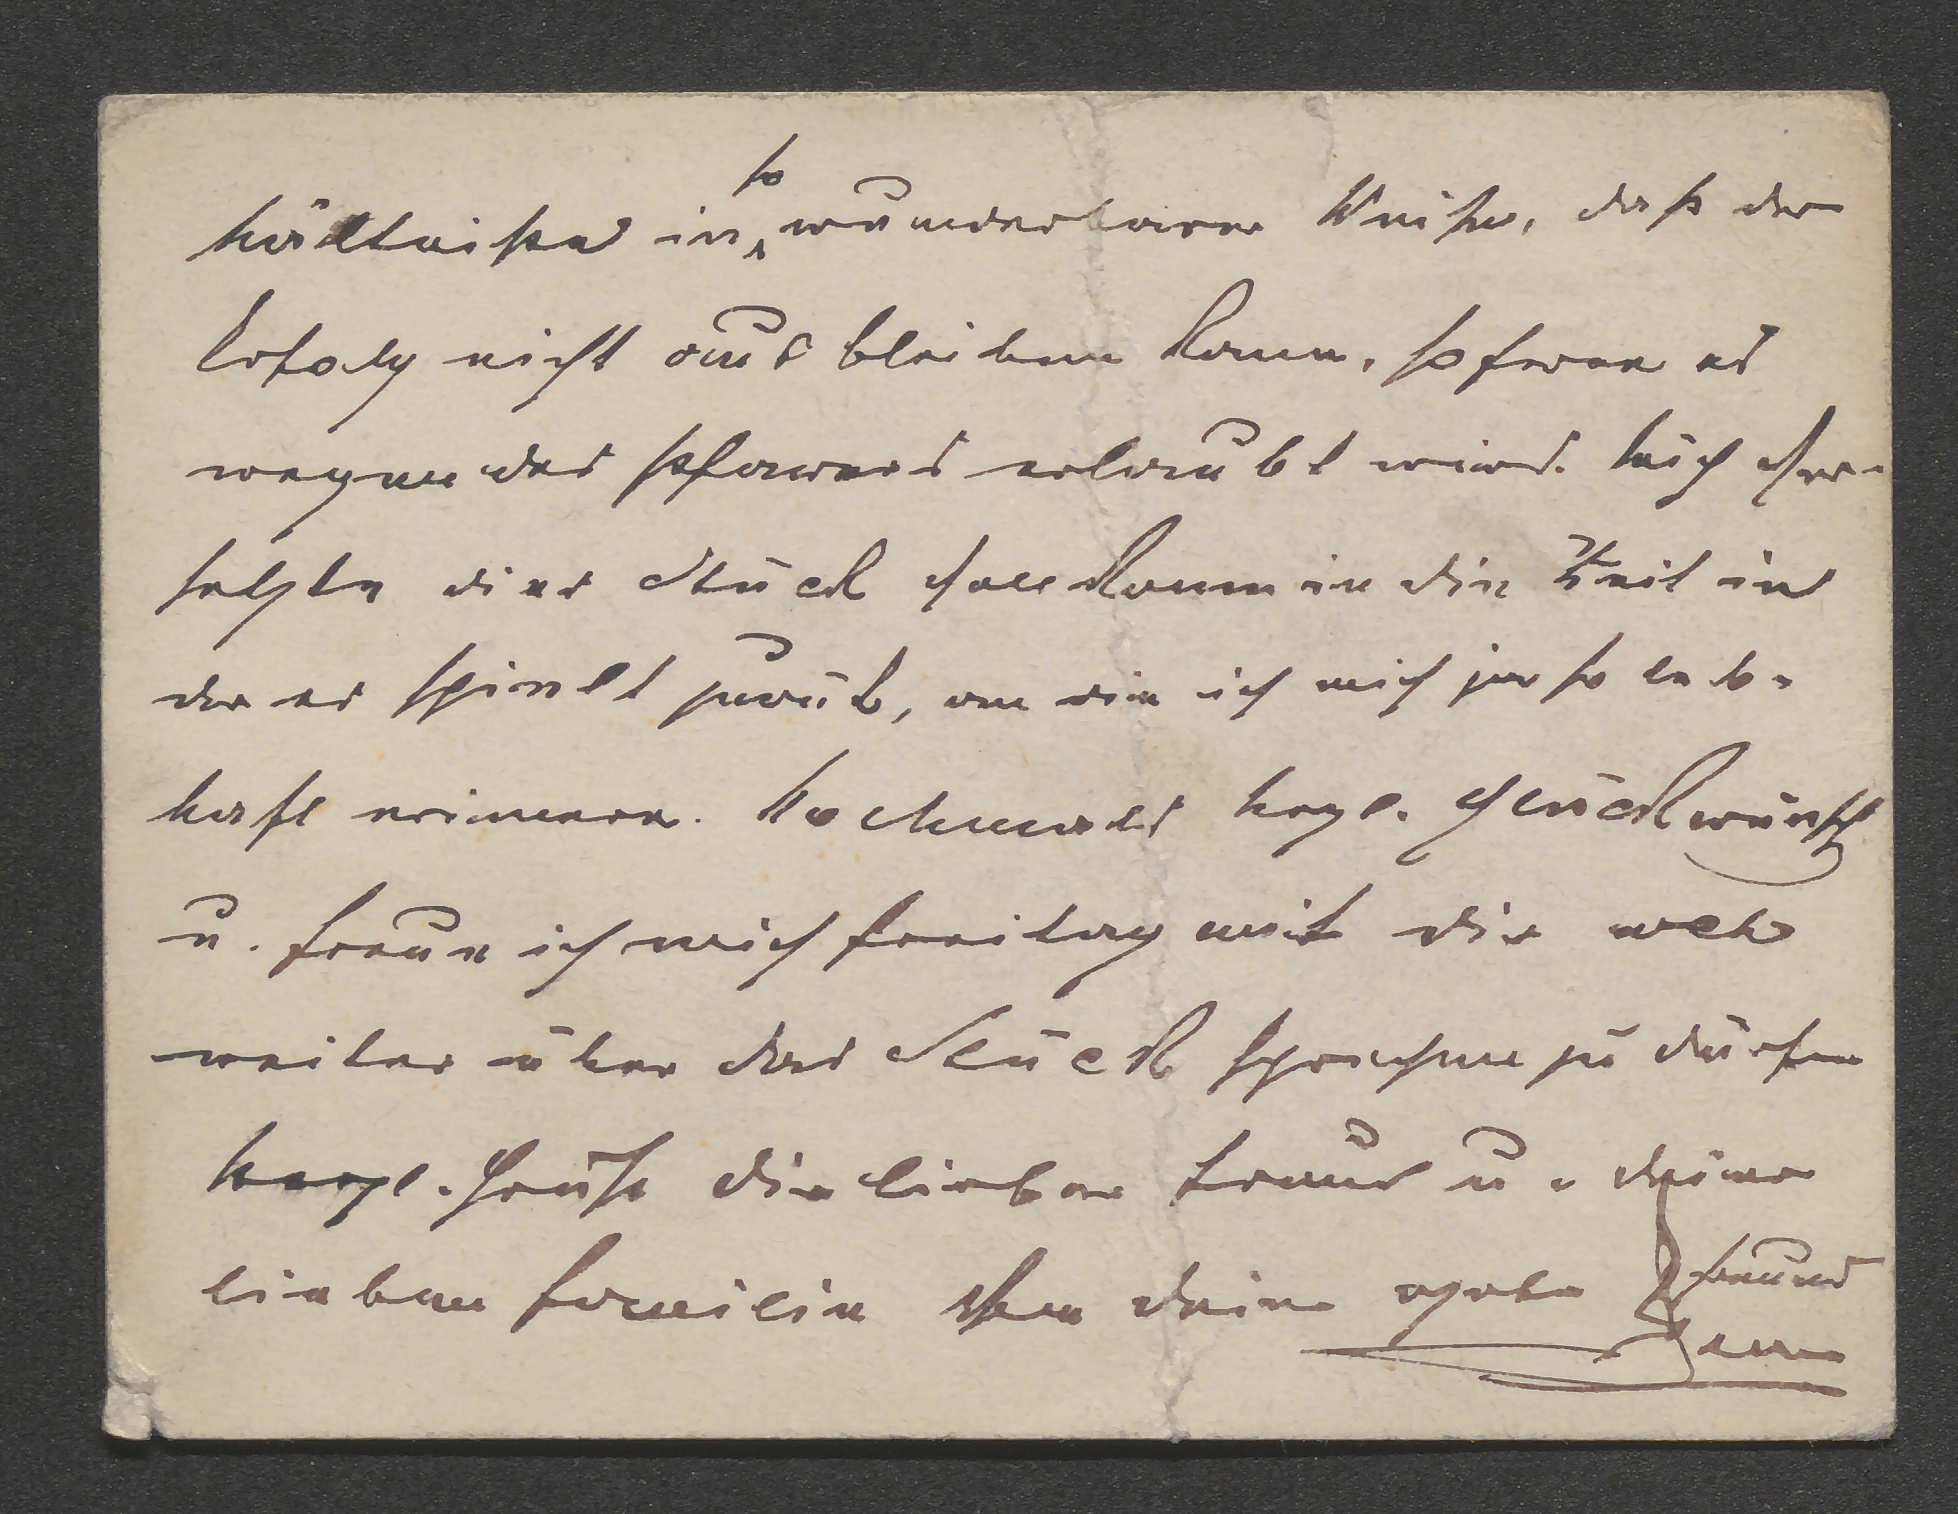 hältniße in so wunderbarer Weise, daß der
Erfolg nicht ausbleiben kann, sofern es
wegen des pfarrers erlaubt wird. Mich ver-
setzte dies Stück vollkommen in die Zeit in
der es spielt zurück, an die ich mich ja so leb-
haft erinnere. Nochmals herzl. Glückwunsch
u. freue ich mich freitag mit dir
weiter über das Stück sprechen zu dürfen
herzl. Grüße dir lieber freund u. deiner
lieben familie von deinem freund